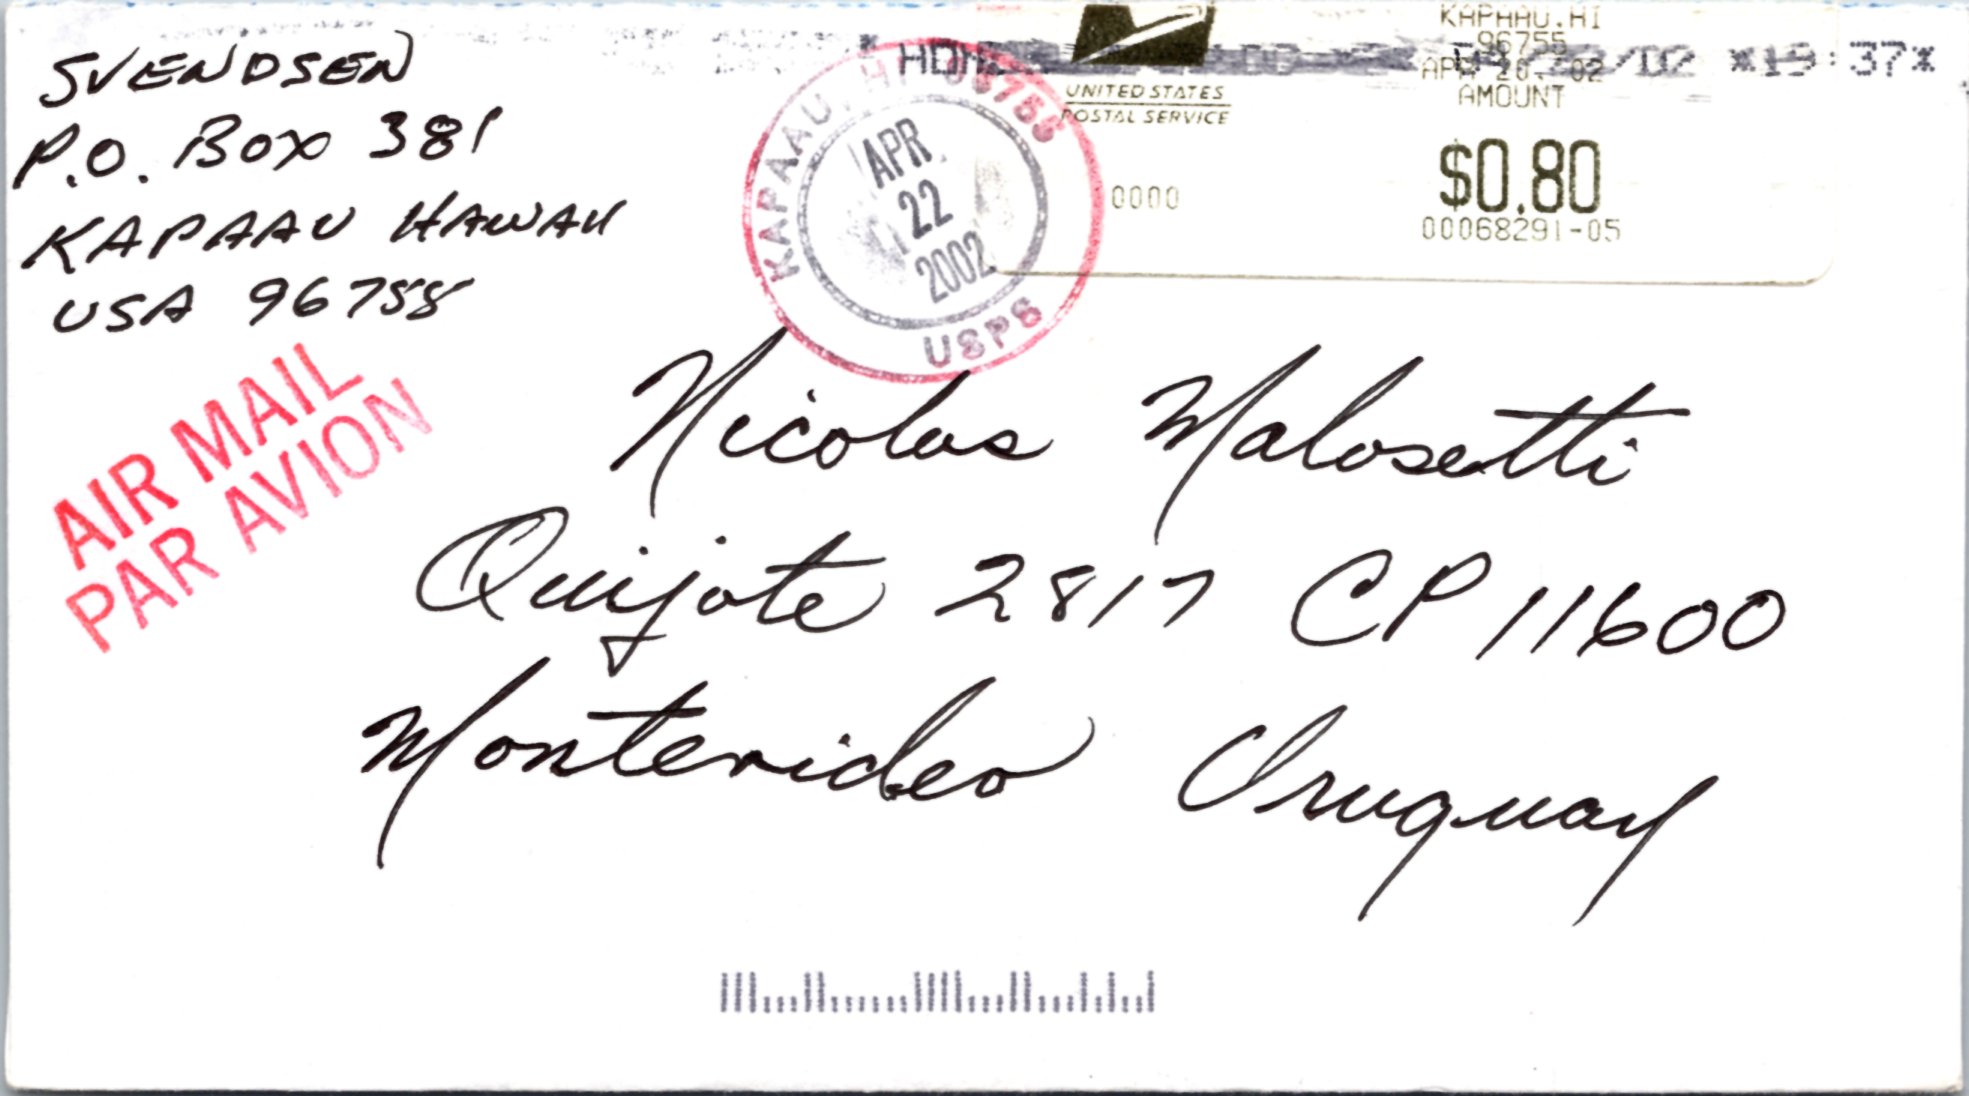 SVENDSEN
P.O. BOX 381
KAPAAU HAWAII
USA 96755
AIR MAIL
PAR AVION
KAPAAU, HI 96755
APR
22
2002
USPS
UNITED STATES
POSTAL SERVICE
0000
KAPAAU, HI
96755
APR 20, '02
AMOUNT
$0.80
00068291-05
/02 *19:37*
Nicolas Malosetti
Quijote 2817 CP 11600
Montevideo Uruguay